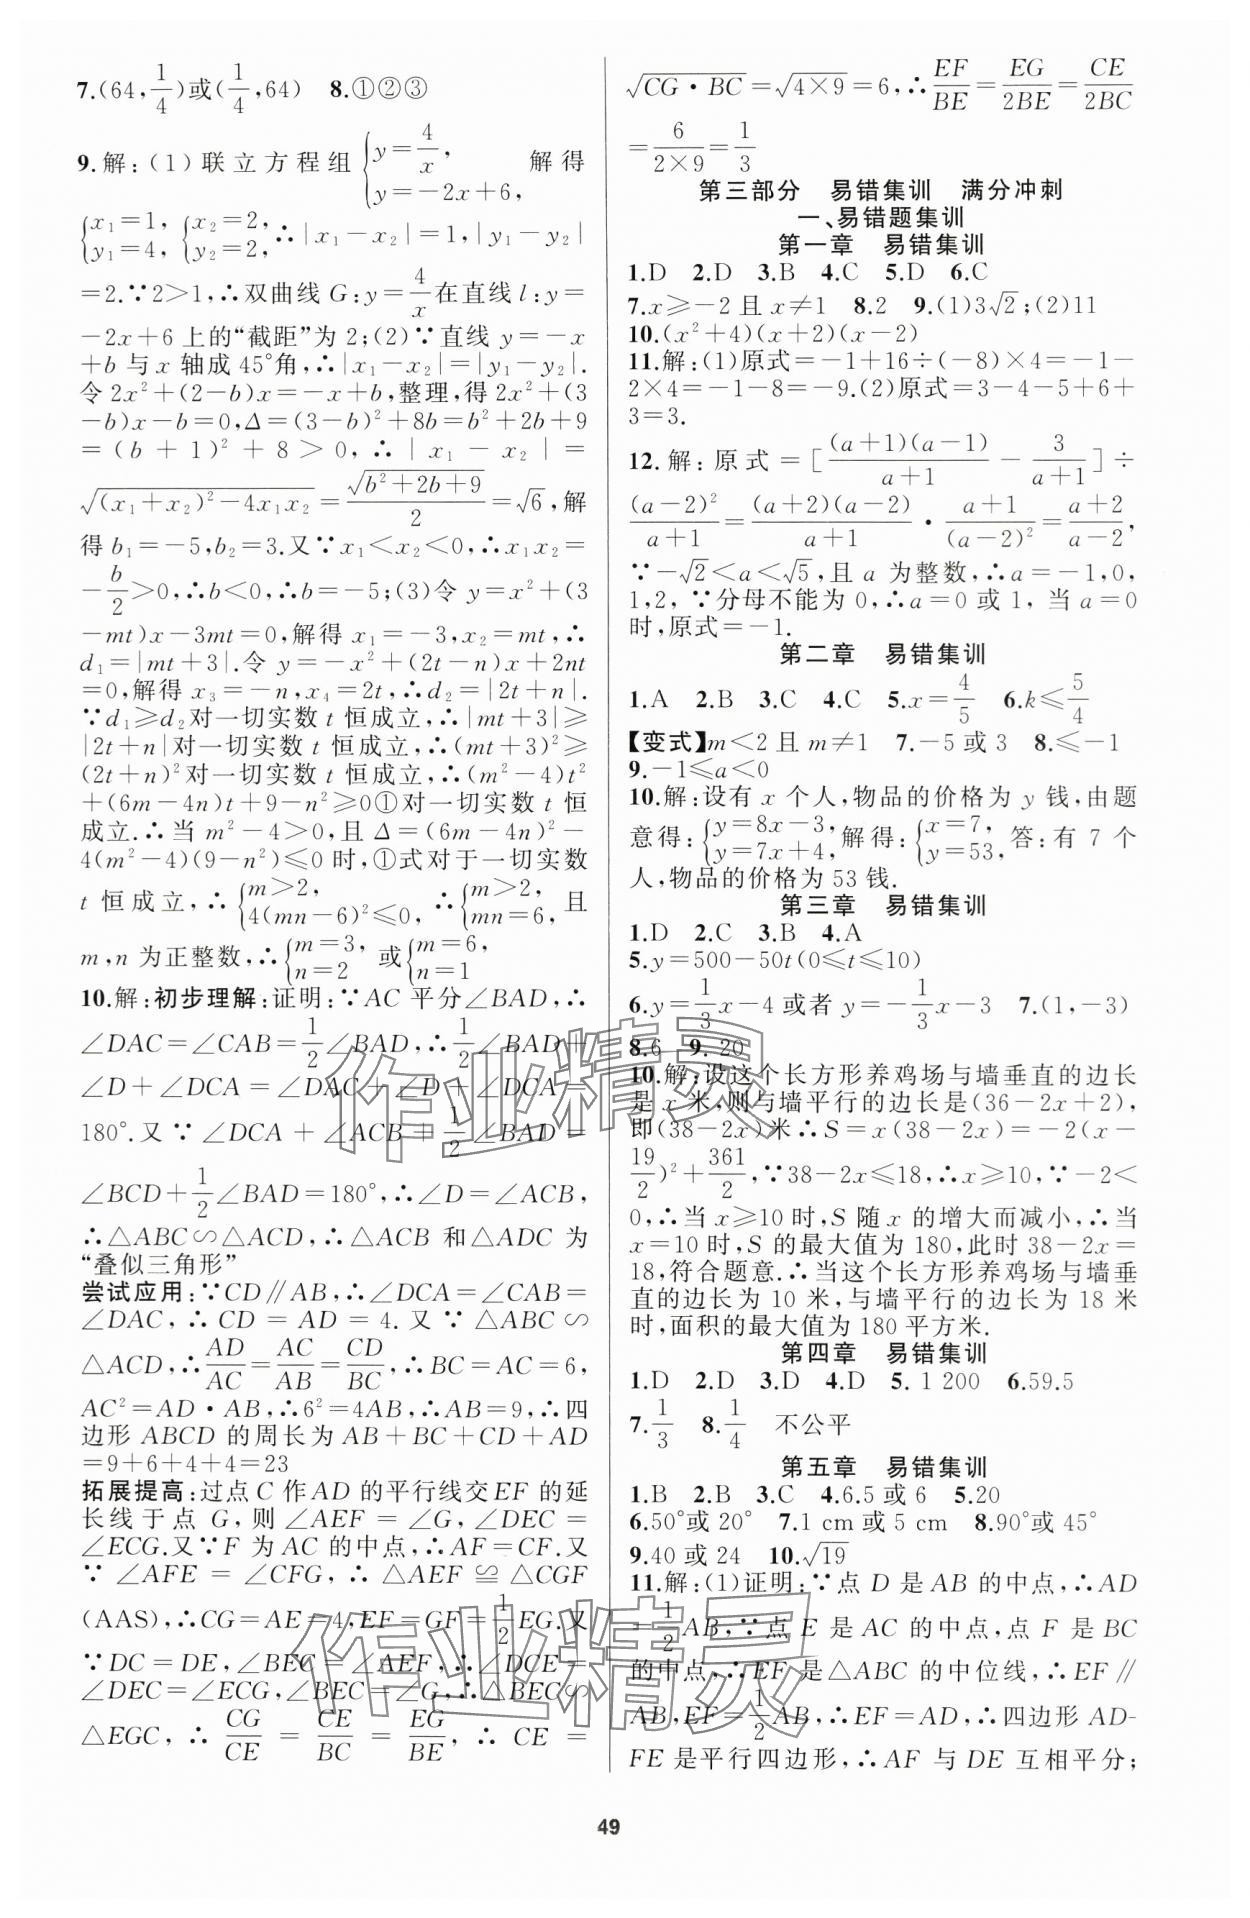 7.(64,1/4)或(1/4,64)　8.①②③
9.解:(1)联立方程组{y=4/x, y=-2x+6, 解得
{x₁=1, y₁=4, {x₂=2, y₂=2, ∴|x₁-x₂|=1,|y₁-y₂|
=2.∵2>1,∴双曲线 G:y=4/x在直线 l:y=
-2x+6 上的“截距”为 2;(2)∵直线 y=-x
+b 与 x 轴成 45°角,∴|x₁-x₂|=|y₁-y₂|.
令 2x²+(2-b)x=-x+b,整理,得 2x²+(3
-b)x-b=0,Δ=(3-b)²+8b=b²+2b+9
=(b+1)²+8>0,∴|x₁-x₂|=
√((x₁+x₂)²-4x₁x₂)=√(b²+2b+9)/2=√6,解
得 b₁=-5,b₂=3.又∵x₁<x₂<0,∴x₁x₂=
-b/2>0,∴b<0,∴b=-5;(3)令 y=x²+(3
-mt)x-3mt=0,解得 x₁=-3,x₂=mt,∴
d₁=|mt+3|.令 y=-x²+(2t-n)x+2nt
=0,解得 x₃=-n,x₄=2t,∴d₂=|2t+n|.
∵d₁≥d₂对一切实数 t 恒成立,∴|mt+3|≥
|2t+n|对一切实数 t 恒成立,∴(mt+3)²≥
(2t+n)²对一切实数 t 恒成立,∴(m²-4)t²
+(6m-4n)t+9-n²≥0①对一切实数 t 恒
成立.∴当 m²-4>0,且 Δ=(6m-4n)²-
4(m²-4)(9-n²)≤0 时,①式对于一切实数
t 恒成立,∴{m>2, 4(mn-6)²≤0, ∴{m>2, mn=6, 且
m,n 为正整数,∴{m=3, n=2 或{m=6, n=1
10.解:初步理解:证明:∵AC 平分∠BAD,∴
∠DAC=∠CAB=1/2∠BAD,∴1/2∠BAD+
∠D+∠DCA=∠DAC+∠D+∠DCA=
180°.又∵∠DCA+∠ACB+1/2∠BAD=
∠BCD+1/2∠BAD=180°,∴∠D=∠ACB,
∴△ABC∽△ACD,∴△ACB 和△ADC 为
“叠似三角形”
尝试应用:∵CD∥AB,∴∠DCA=∠CAB=
∠DAC,∴CD=AD=4.又∵△ABC∽
△ACD,∴AD/AC=AC/AB=CD/BC,∴BC=AC=6,
AC²=AD·AB,∴6²=4AB,∴AB=9,∴四
边形 ABCD 的周长为 AB+BC+CD+AD
=9+6+4+4=23
拓展提高:过点 C 作 AD 的平行线交 EF 的延
长线于点 G,则∠AEF=∠G,∠DEC=
∠ECG.又∵F 为 AC 的中点,∴AF=CF.又
∵∠AFE=∠CFG,∴△AEF≌△CGF
(AAS),∴CG=AE=4,EF=GF=1/2EG.又
∵DC=DE,∠BEC=∠AEF,∴∠DCE=
∠DEC=∠ECG,∠BEC=∠G,∴△BEC∽
△EGC,∴CG/CE=CE/BC=EG/BE,∴CE=
√(CG·BC)=√(4×9)=6,∴EF/BE=EG/2BE=CE/2BC
=6/(2×9)=1/3
第三部分　易错集训　满分冲刺
一、易错题集训
第一章　易错集训
1.D　2.D　3.B　4.C　5.D　6.C
7.x≥-2 且 x≠1　8.2　9.(1)3√2;(2)11
10.(x²+4)(x+2)(x-2)
11.解:(1)原式=-1+16÷(-8)×4=-1-
2×4=-1-8=-9.(2)原式=3-4-5+6+
3=3.
12.解:原式=[(a+1)(a-1)/(a+1)-3/(a+1)]÷
(a-2)²/(a+1)=(a+2)(a-2)/(a+1)·(a+1)/(a-2)²=(a+2)/(a-2),
∵-√2<a<√5,且 a 为整数,∴a=-1,0,
1,2,∵分母不能为 0,∴a=0 或 1,当 a=0
时,原式=-1.
第二章　易错集训
1.A　2.B　3.C　4.C　5.x=4/5　6.k≤5/4
【变式】m<2 且 m≠1　7.-5 或 3　8.≤-1
9.-1≤a<0
10.解:设有 x 个人,物品的价格为 y 钱,由题
意得:{y=8x-3, y=7x+4, 解得:{x=7, y=53, 答:有 7 个
人,物品的价格为 53 钱.
第三章　易错集训
1.D　2.C　3.B　4.A
5.y=500-50t(0≤t≤10)
6.y=1/3x-4 或者 y=-1/3x-3　7.(1,-3)
8.6　9.20
10.解:设这个长方形养鸡场与墙垂直的边长
是 x 米,则与墙平行的边长是(36-2x+2),
即(38-2x)米∴S=x(38-2x)=-2(x-
19/2)²+361/2,∵38-2x≤18,∴x≥10,∵-2<
0,∴当 x≥10 时,S 随 x 的增大而减小,∴当
x=10 时,S 的最大值为 180,此时 38-2x=
18,符合题意.∴当这个长方形养鸡场与墙垂
直的边长为 10 米,与墙平行的边长为 18 米
时,面积的最大值为 180 平方米.
第四章　易错集训
1.D　2.D　3.D　4.D　5.1 200　6.59.5
7.1/3　8.1/4　不公平
第五章　易错集训
1.B　2.B　3.C　4.6.5 或 6　5.20
6.50°或 20°　7.1 cm 或 5 cm　8.90°或 45°
9.40 或 24　10.√19
11.解:(1)证明:∵点 D 是 AB 的中点,∴AD
=1/2AB,∵点 E 是 AC 的中点,点 F 是 BC
的中点,∴EF 是△ABC 的中位线,∴EF∥
AB,EF=1/2AB,∴EF=AD,∴四边形 AD-
FE 是平行四边形,∴AF 与 DE 互相平分;
49
作业精灵
作业精灵